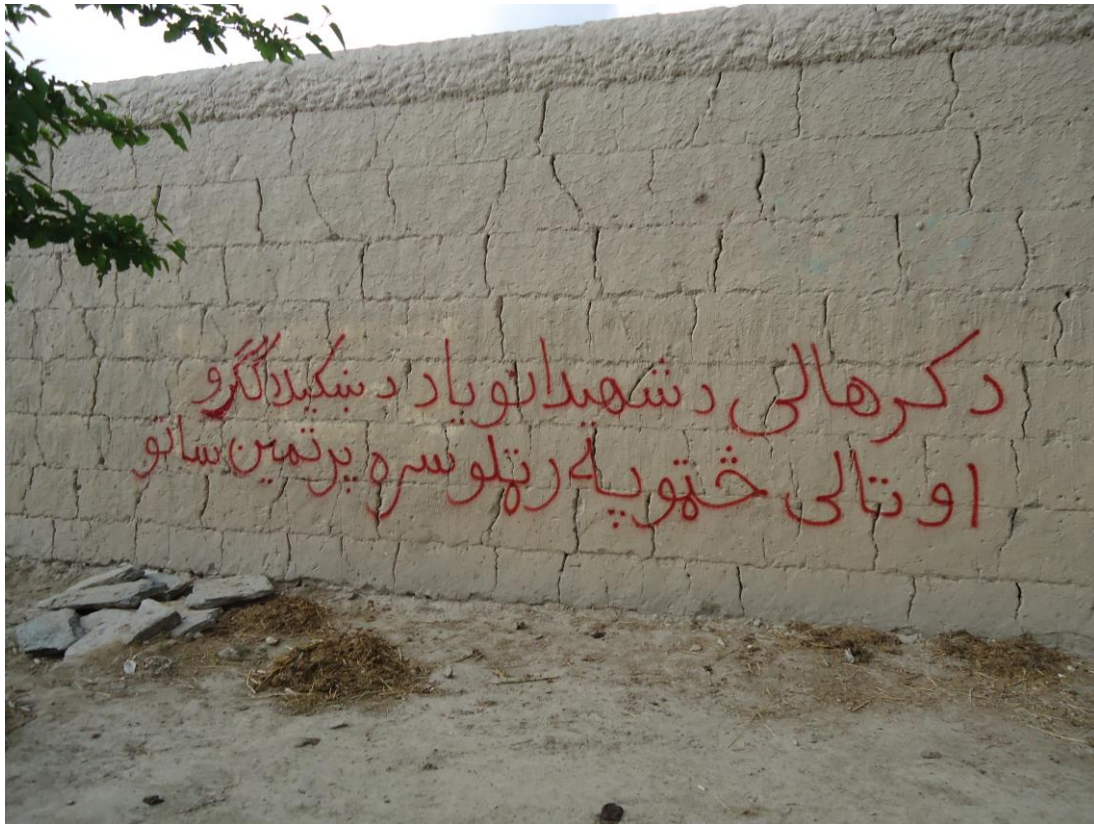 د کرهالی د شهیدانو یاد د ښکیلاکګرو
او تالی څټو په رټلو سره پرتمین ساتو